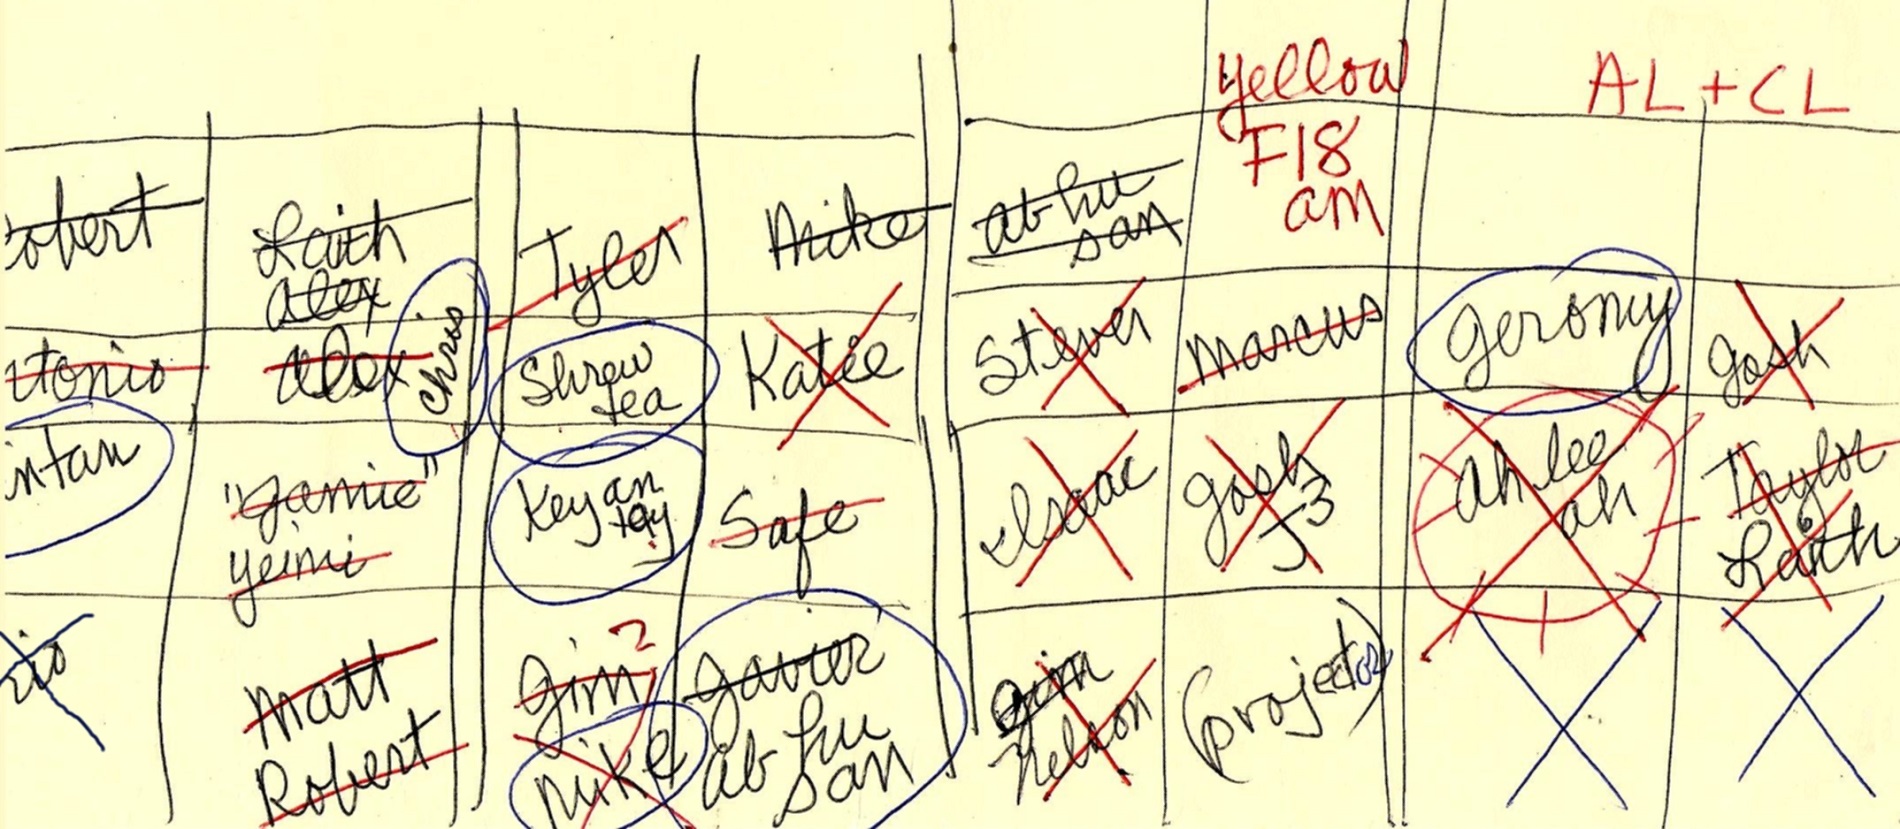 yellow
F18
am
AL + CL
obert
Laith
alex
Tyler
Mike
ab hu
san
tonio
alex
chris
Shrew
tea
Katie
Steven
Marcus
geromy
gosh
ntan
"gamie"
yeimi
Key an
tay
Safe
Isaac
gosh
J3
ah lee
ah
Taylor
Laith
Matt
Robert
gim ?
Mike
gavier
ab hu
san
gim
nelson
(projector)